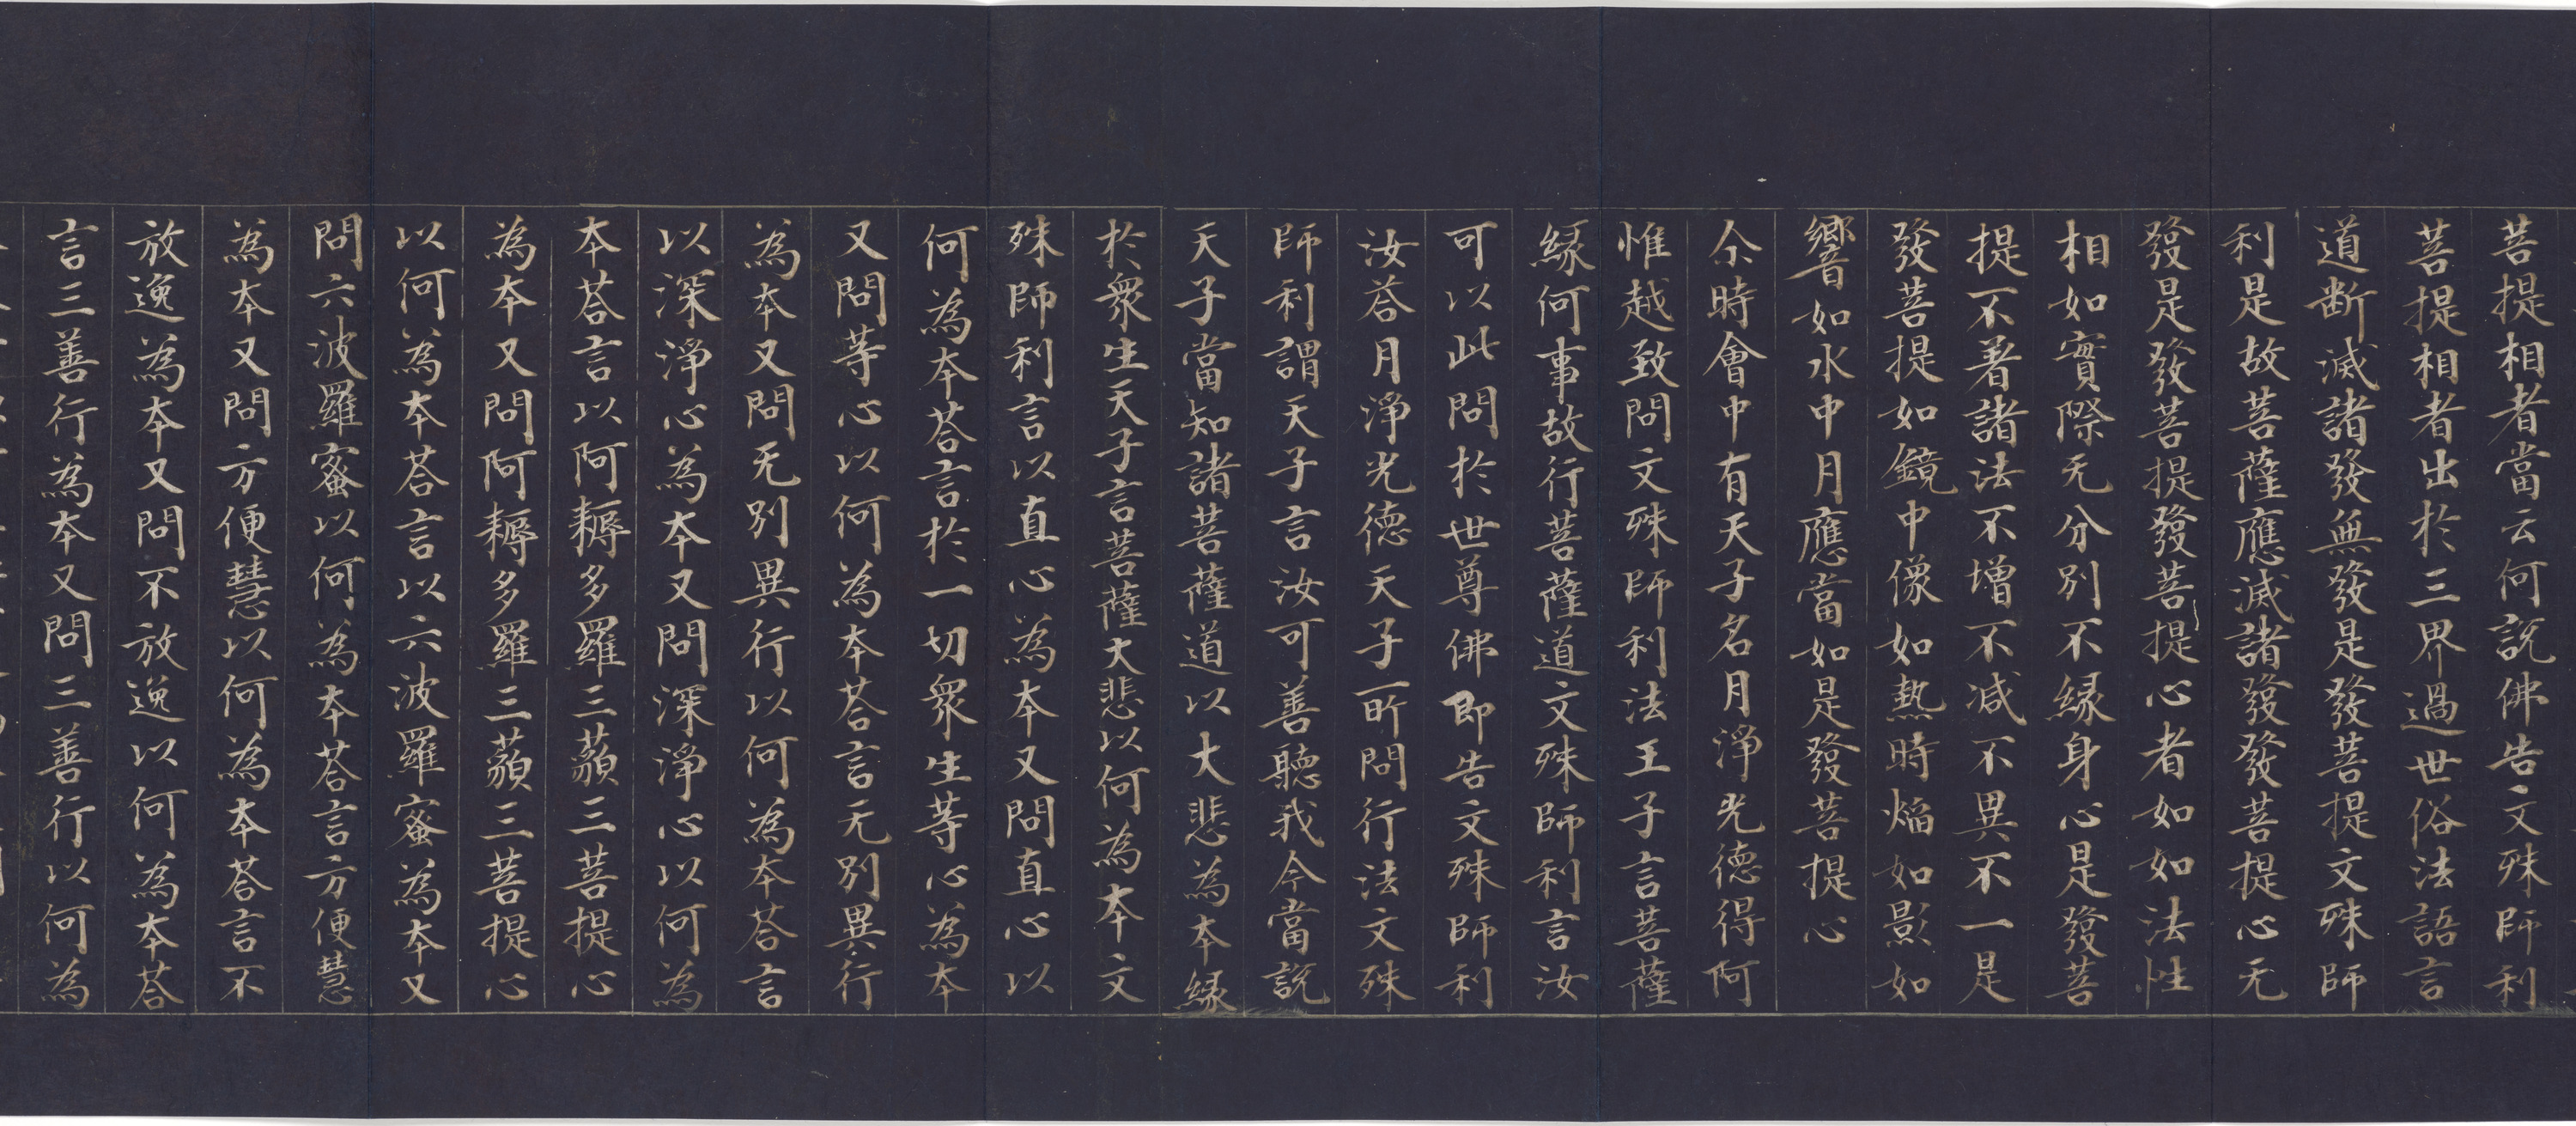 菩提相者當云何説佛告文殊師利
菩提相者出於三界過世俗法語言
道斷滅諸發無發是發菩提文殊師
利是故菩薩應滅諸發發菩提心无
發是發菩提發菩提心者如如法性
相如實際无分別不緣身心是發菩
提不著諸法不增不減不異不一是
發菩提如鏡中像如熱時焔如影如
響如水中月應當如是發菩提心
尒時會中有天子名月淨光德得阿
惟越致問文殊師利法王子言菩薩
緣何事故行菩薩道文殊師利言汝
可以此問於世尊佛即告文殊師利
汝荅月淨光德天子所問行法文殊
師利謂天子言汝可善聽我今當説
天子當知諸菩薩道以大悲為本緣
於衆生天子言菩薩大悲以何為本文
殊師利言以直心為本又問直心以
何為本荅言於一切衆生等心為本
又問等心以何為本荅言无別異行
為本又問无別異行以何為本荅言
以深淨心為本又問深淨心以何為
本荅言以阿耨多羅三藐三菩提心
為本又問阿耨多羅三藐三菩提心
以何為本荅言以六波羅蜜為本又
問六波羅蜜以何為本荅言方便慧
為本又問方便慧以何為本荅言不
放逸為本又問不放逸以何為本荅
言三善行為本又問三善行以何為